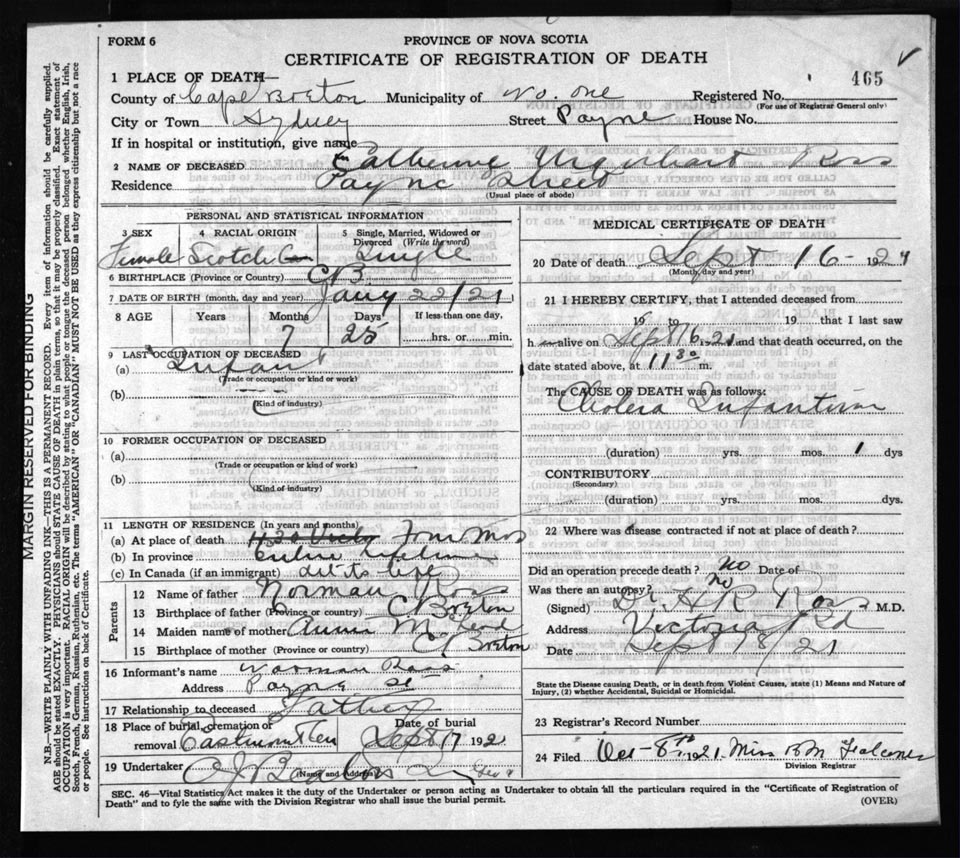 FORM 6
PROVINCE OF NOVA SCOTIA
CERTIFICATE OF REGISTRATION OF DEATH
465
1 PLACE OF DEATH—
County of Cape Breton Municipality of No. one Registered No.
(For use of Registrar General only)
City or Town Sydney Street Payne House No.
If in hospital or institution, give name
2 NAME OF DECEASED Catherine Urquhart Ross
Residence Payne Street
(Usual place of abode)
PERSONAL AND STATISTICAL INFORMATION
3 SEX 4 RACIAL ORIGIN 5 Single, Married, Widowed or Divorced (Write the word)
Female Scotch Single
6 BIRTHPLACE (Province or Country) C B.
7 DATE OF BIRTH (month, day and year) Jany 22/21
8 AGE Years Months Days If less than one day,
7 25 hrs. or min.
9 LAST OCCUPATION OF DECEASED
(a) Infant
(Trade or occupation or kind or work)
(b)
(Kind of industry)
10 FORMER OCCUPATION OF DECEASED
(a)
(Trade or occupation or kind of work)
(b)
(Kind of Industry)
11 LENGTH OF RESIDENCE (In years and months)
(a) At place of death Four Mos
(b) In province Entire lifetime
(c) In Canada (if an immigrant) life
Parents
12 Name of father Norman Ross
13 Birthplace of father (Province or country) C Breton
14 Maiden name of mother Annie McLeod
15 Birthplace of mother (Province or country) C Breton
16 Informant's name Norman Ross
Address Payne St
17 Relationship to deceased Father
18 Place of burial, cremation or removal Date of burial
Sept 17 1921
19 Undertaker
(Name and Address)
MEDICAL CERTIFICATE OF DEATH
20 Date of death Sept 16- 1921
(Month, day and year)
21 I HEREBY CERTIFY, that I attended deceased from
19 to 19 that I last saw
h alive on Sept 16 21 and that death occurred, on
date stated above, at 11 30 m.
The CAUSE OF DEATH was as follows:
Cholera Infantum
(duration) yrs. mos. 1 dys
CONTRIBUTORY
(Secondary)
(duration) yrs. mos. dys.
22 Where was disease contracted if not at place of death?
Did an operation precede death? no Date of
Was there an autopsy? no
(Signed) Dr H R Ross M.D.
Address Victoria Rd
Date Sept 18/21
State the Disease causing Death, or in death from Violent Causes, state (1) Means and Nature of
Injury, (2) whether Accidental, Suicidal or Homicidal.
23 Registrar's Record Number
24 Filed Oct- 8th 1921. Miss
Division Registrar
SEC. 46—Vital Statistics Act makes it the duty of the Undertaker or person acting as Undertaker to obtain all the particulars required in the "Certificate of Registration of
Death" and to fyle the same with the Division Registrar who shall issue the burial permit.
(OVER)
MARGIN RESERVED FOR BINDING
N.B.—WRITE PLAINLY WITH UNFADING INK—THIS IS A PERMANENT RECORD. Every item of information should be carefully supplied.
AGE should be stated EXACTLY. PHYSICIANS should STATE CAUSE OF DEATH in plain terms, so that it may be properly classified. Exact statement of
OCCUPATION is very important. RACIAL ORIGIN will be described by stating to what people or tongue the deceased person belonged whether English, Irish,
Scotch, French, German, Russian, Ruthenian, etc. The terms "AMERICAN" OR "CANADIAN" MUST NOT BE USED as they express citizenship but not a race
or people. See instructions on back of Certificate.